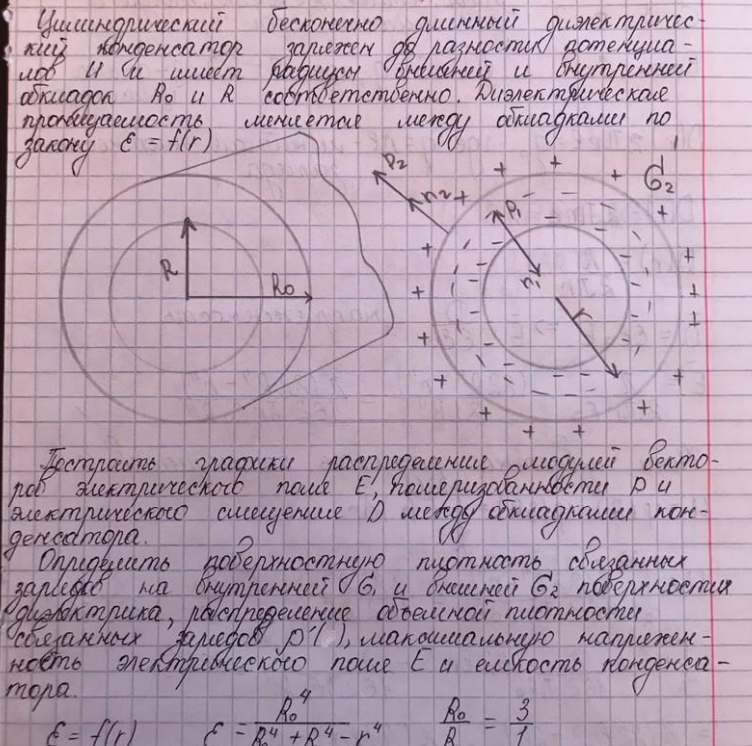 Цилиндрический бесконечно длинный диэлектричес-
кий конденсатор заряжен до разности потенциа-
лов U и имеет радиусы внешней и внутренней
обкладок R₀ и R соответственно. Диэлектрическая
проницаемость меняется между обкладками по
закону ε = f(r)
P₂
n₂
P₁
n₁
G₂'
R
R₀
r
Построить графики распределение модулей векто-
ров электрического поля E, поляризованности P и
электрического смещение D между обкладками кон-
денсатора.
Определить поверхностную плотность связанных
зарядов на внутренней G₁ и внешней G₂ поверхностях
диэлектрика, распределение объемной плотности
связанных зарядов ρ'( ), максимальную напряжен-
ность электрического поля E и емкость конденса-
тора.
ε = f(r) ε = R₀⁴ / (R₀⁴ + R⁴ − r⁴) R₀/R = 3/1